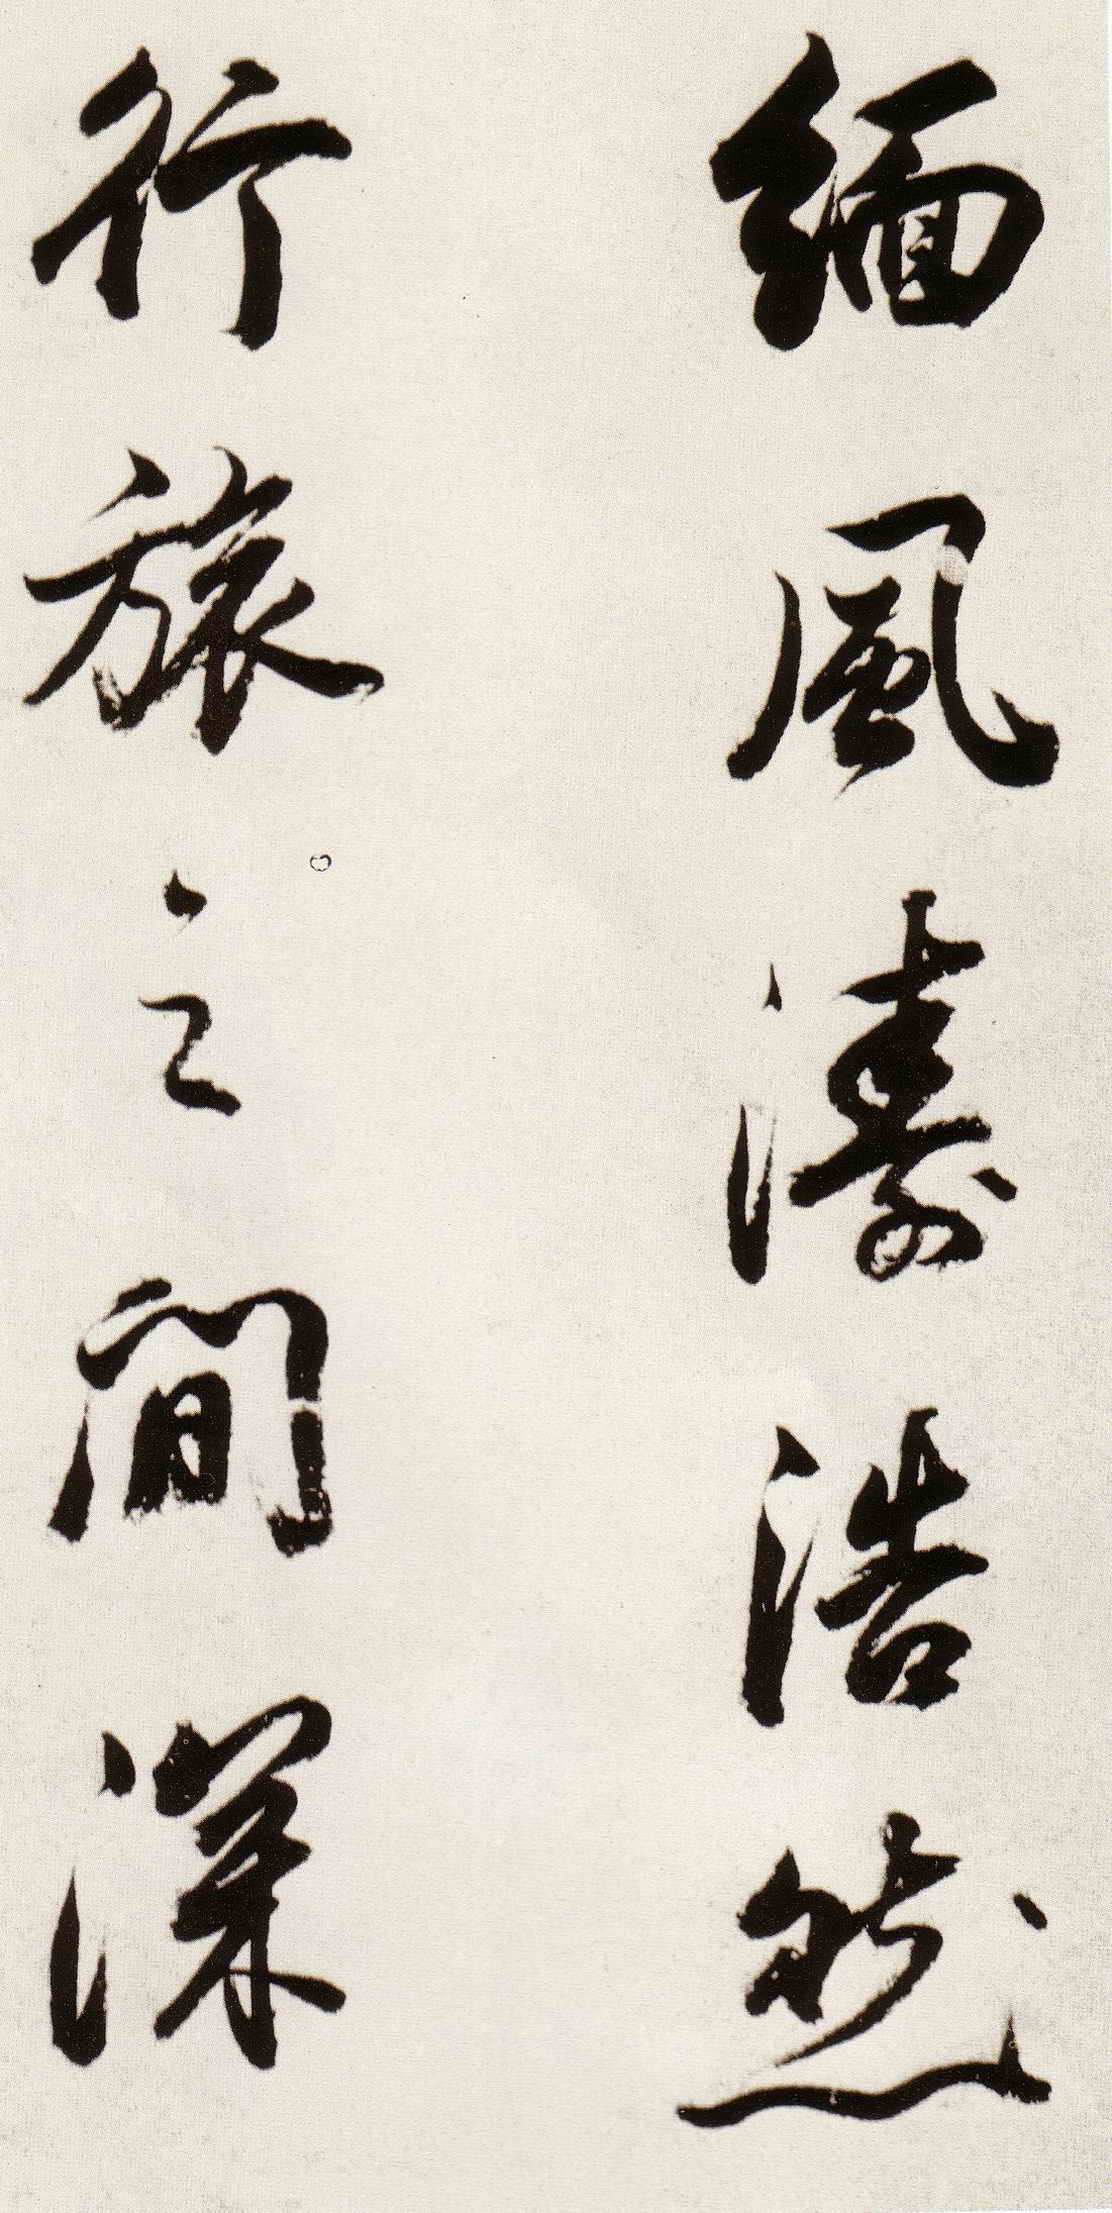 緬風濤浩然
行旅之間深